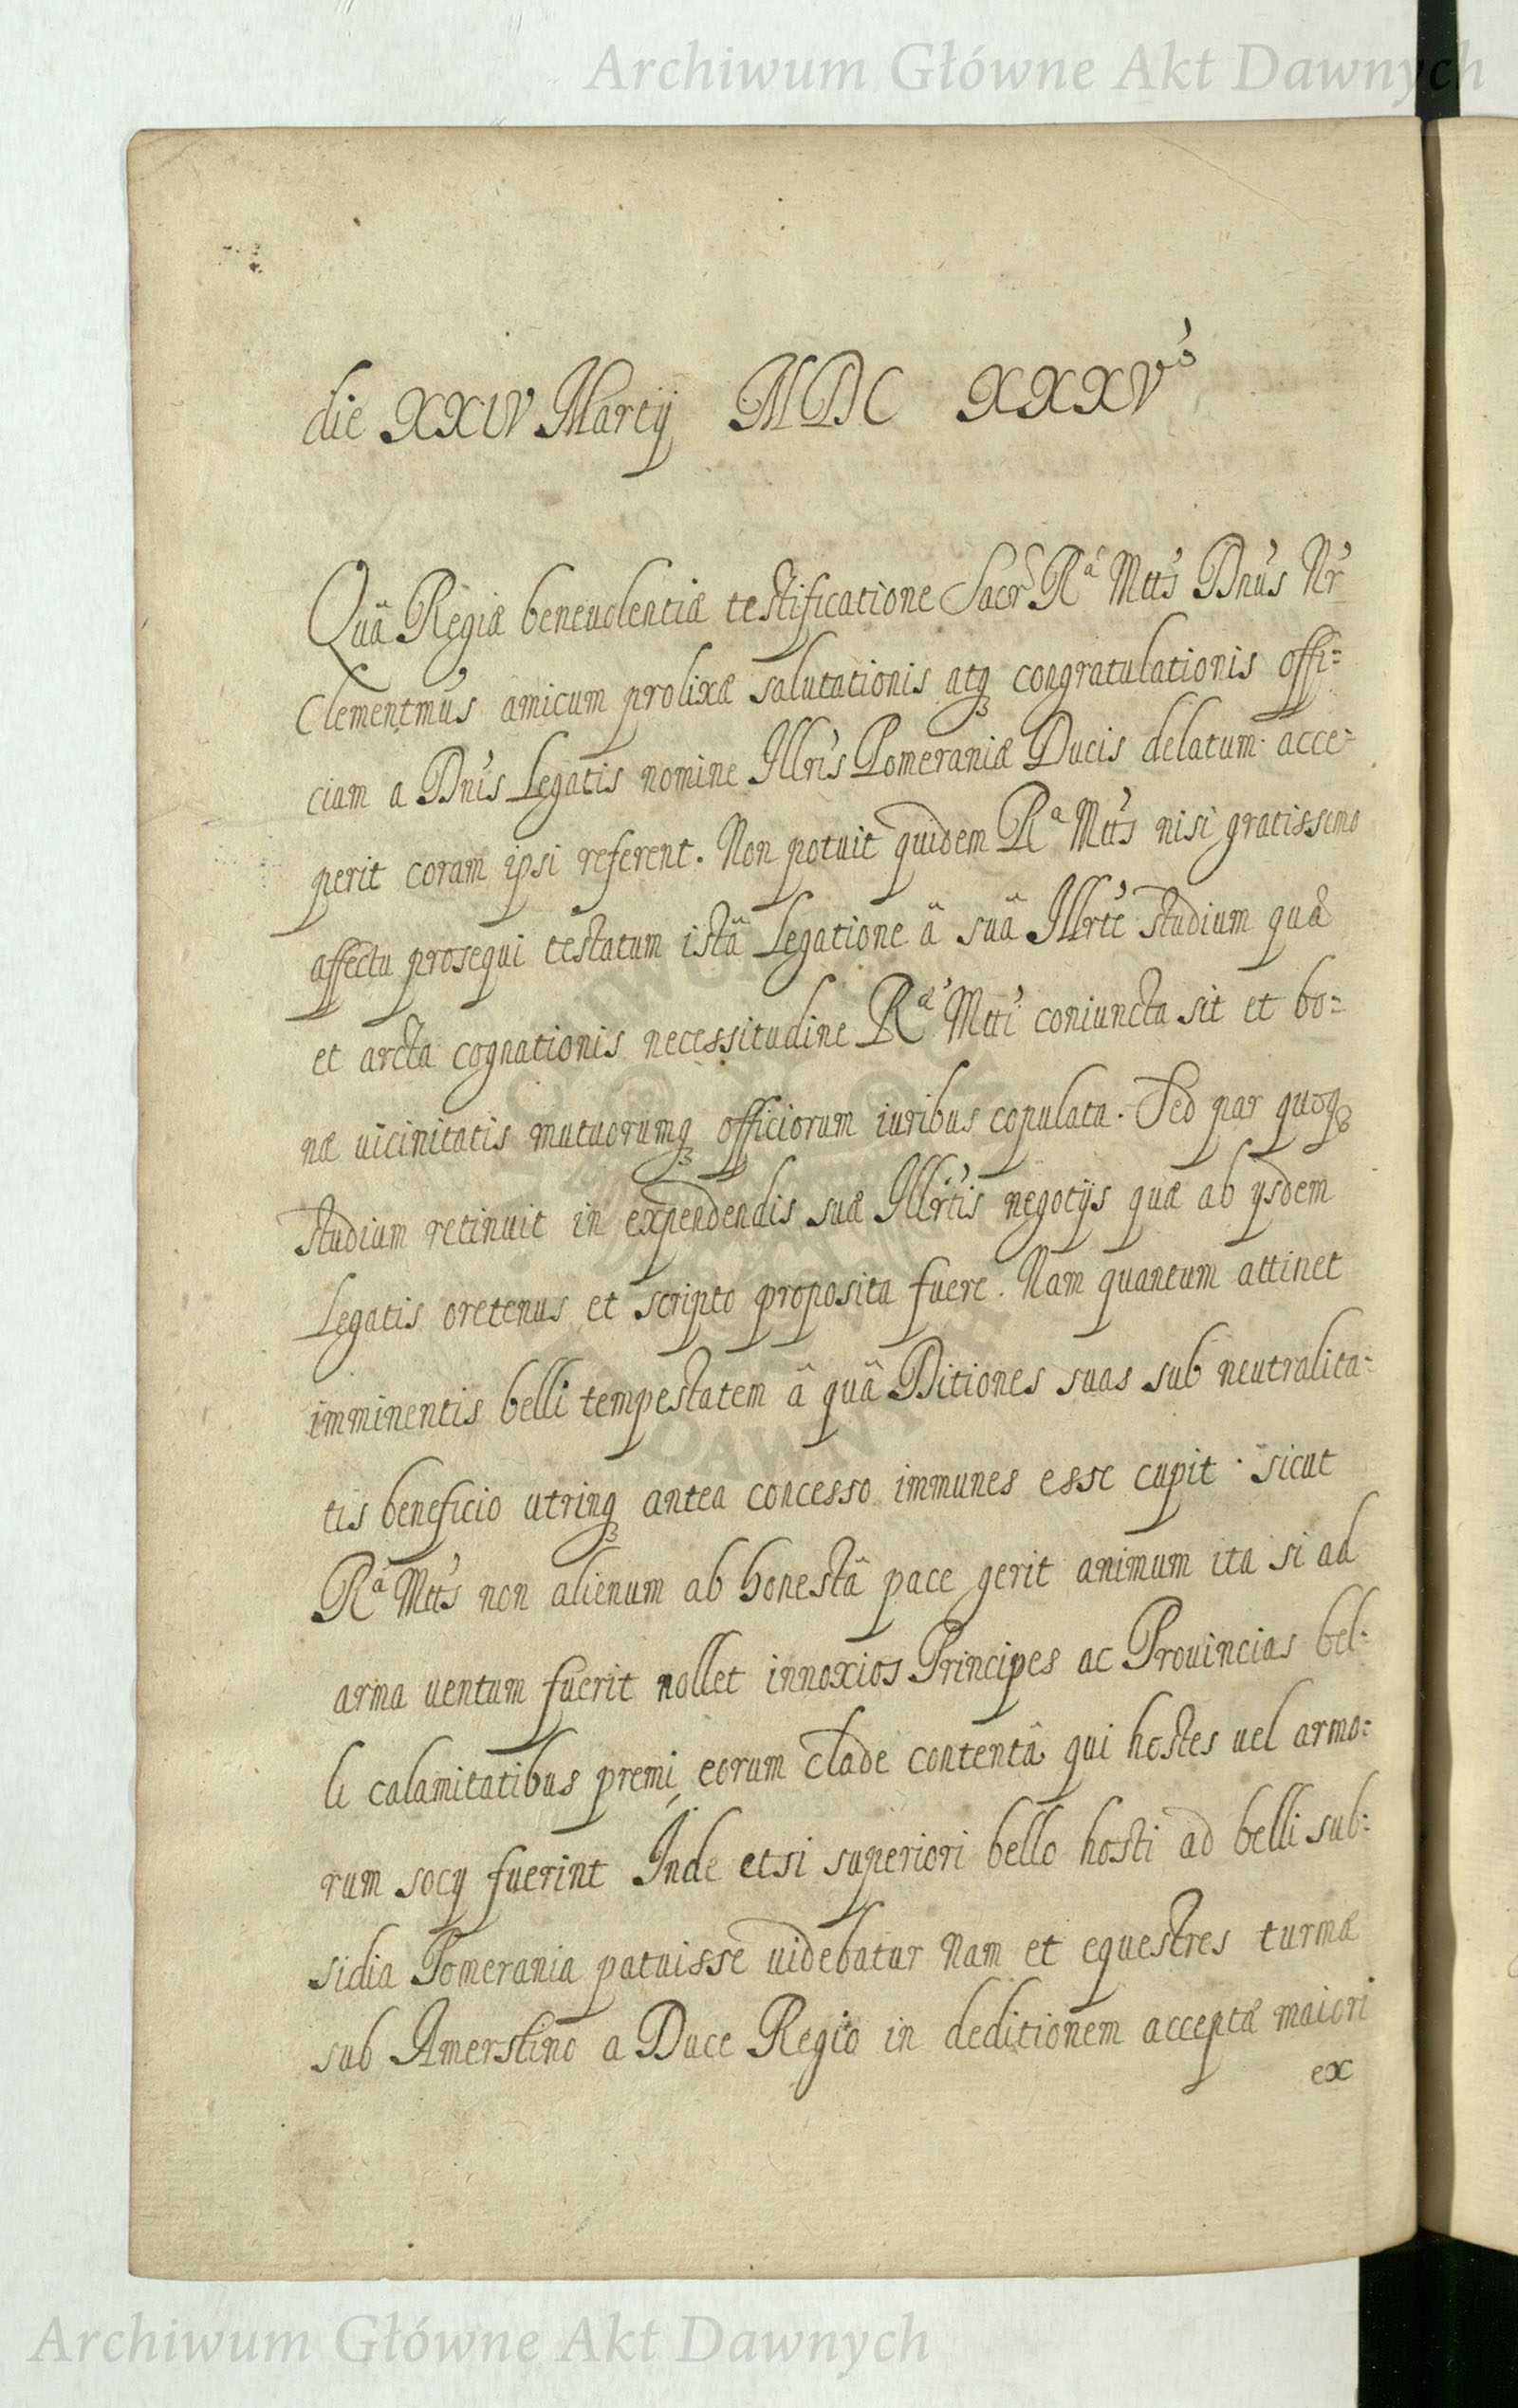 Archiwum Główne Akt Dawnych
die XXIV Martij MDC XXXV
Quâ Regiæ beneuolentiæ testificatione Sacr Rᵃ Mtts Dnus Nr
Clementmus amicum prolixæ salutationis atq congratulationis offi=
cium a Dnis Legatis nomine Illris Pomeraniæ Ducis delatum acce=
perit coram ipsi referent. Non potuit quidem Rᵃ Mtts nisi gratissimo
affectu prosequi testatum istâ Legatione â suâ Illrte studium quâ
et arcta cognationis necessitudine Rᵃᵉ Mtti coniuncta sit et bo=
næ uicinitatis mutuorumq officiorum iuribus copulata. Sed par quoq
studium retinuit in expendendis suæ Illrtis negotijs quæ ab ysdem
Legatis oretenus et scripto proposita fuere. Nam quantum attinet
imminentis belli tempestatem â quâ Ditiones suas sub neutralita=
tis beneficio utrinq antea concesso immunes esse cupit. sicut
Rᵃ Mtts non alienum ab honestâ pace gerit animum ita si ad
arma uentum fuerit nollet innoxios Principes ac Prouincias bel=
li calamitatibus premi, eorum clade contentâ qui hostes uel armo=
rum socy fuerint Inde etsi superiori bello hosti ad belli sub=
sidia Pomerania patuisse uidebatur Nam et equestres turmæ
sub Amerstino a Duce Regio in deditionem acceptæ maiori
ex
Archiwum Główne Akt Dawnych